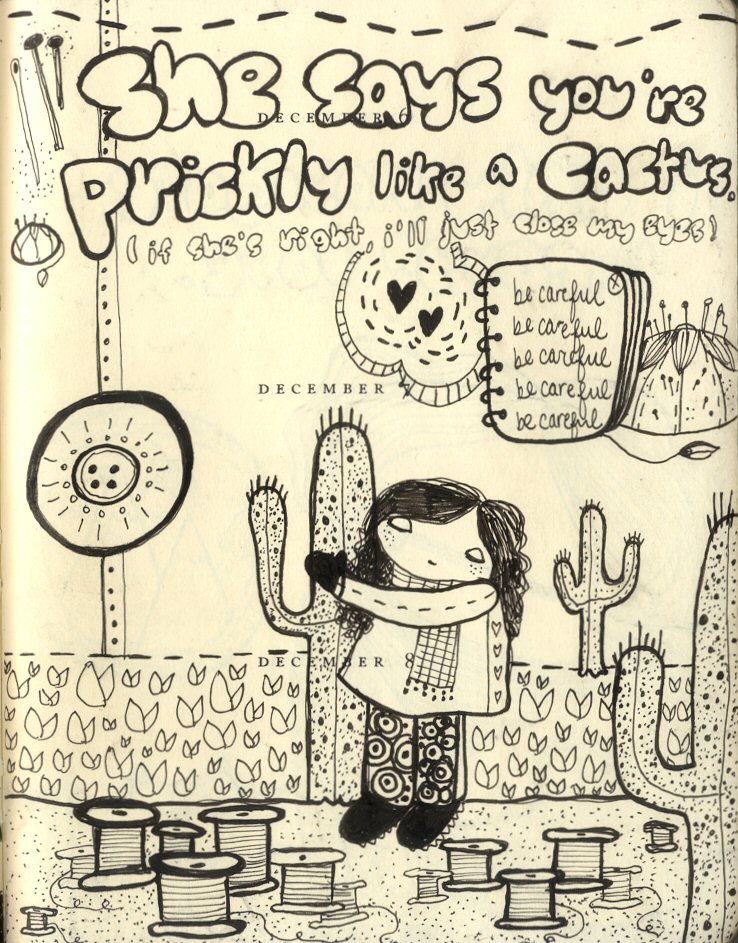 She says you're
DECEMBER 6
prickly like a cactus.
(if she's right, i'll just close my eyes)
be careful
be careful
be careful
be careful
be careful
DECEMBER 7
DECEMBER 8